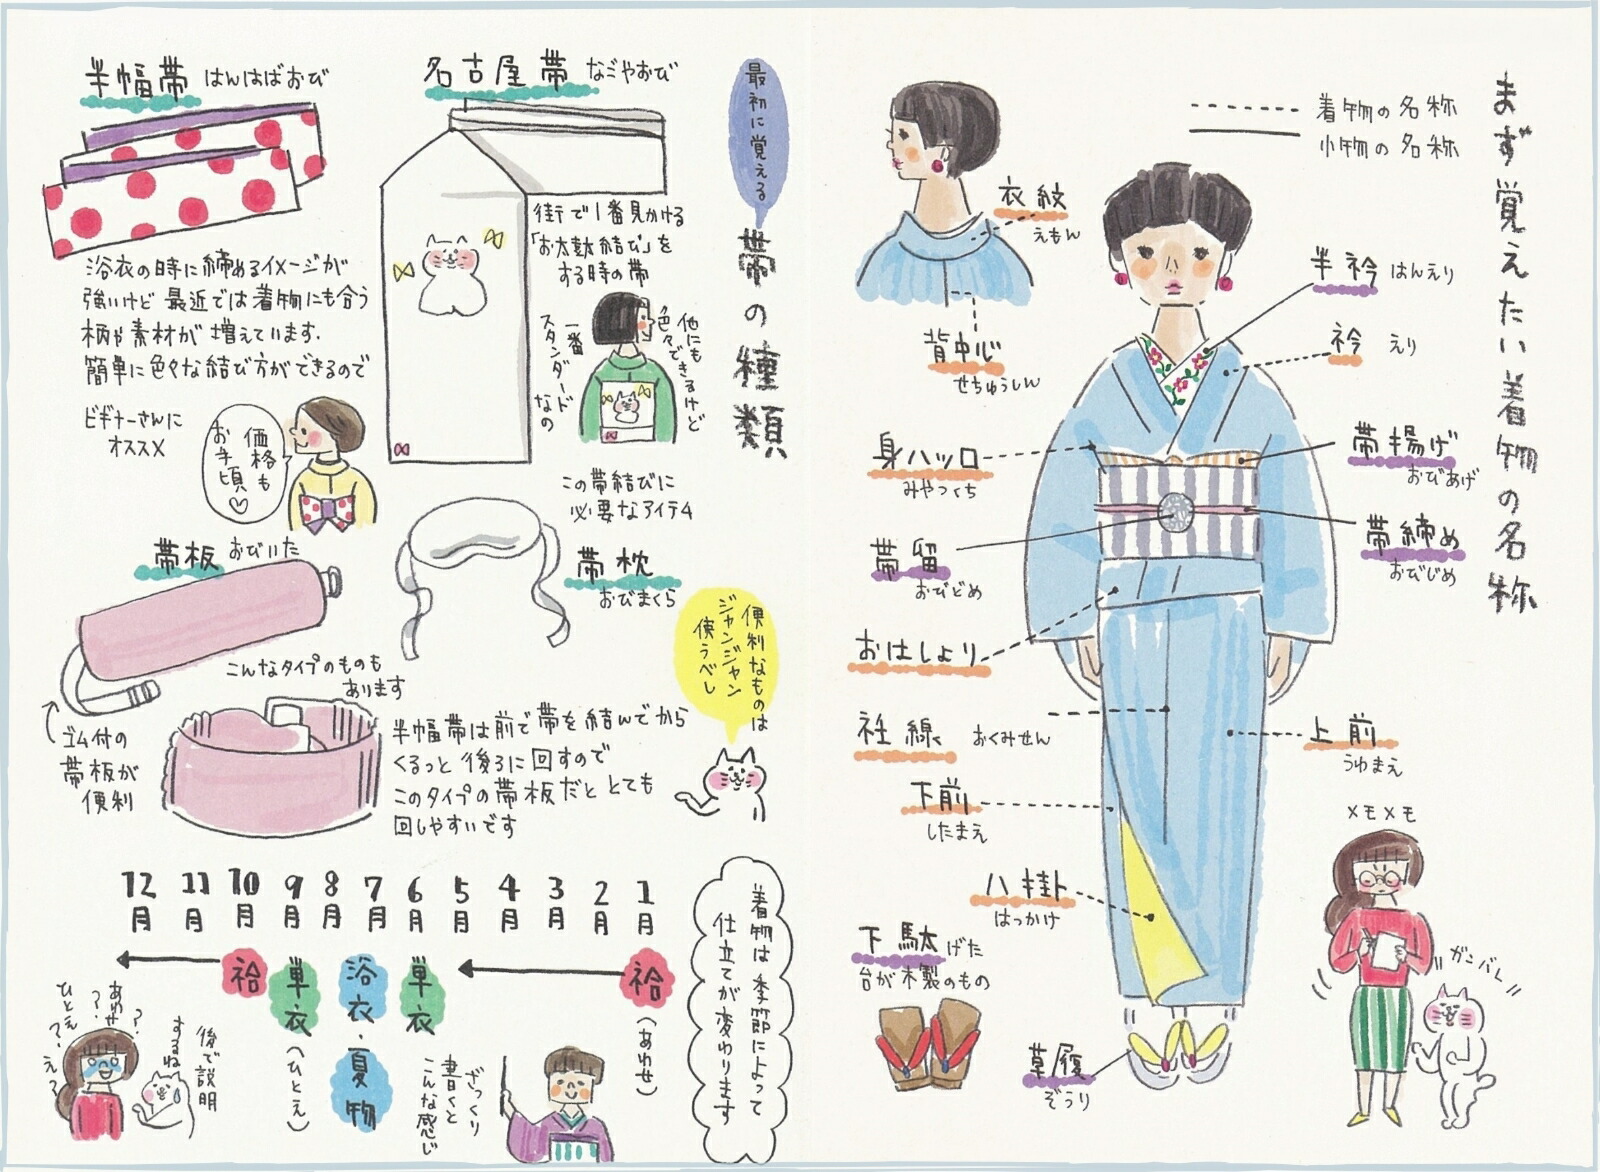 まず覚えたい着物の名称
着物の名称
小物の名称
衣紋
えもん
背中心
せちゅうしん
半衿 はんえり
衿 えり
身ハツ口
みやつくち
帯揚げ
おびあげ
帯締め
おびじめ
帯留
おびどめ
おはしょり
衽線 おくみせん
上前
うわまえ
下前
したまえ
八掛
はっかけ
下駄 げた
台が木製のもの
草履
ぞうり
メモメモ
ガンバレ
最初に覚える
帯の種類
名古屋帯 なごやおび
街で1番見かける
「お太鼓結び」を
する時の帯
他にも
色々できるけど
一番
スタンダードなの
この帯結びに
必要なアイテム
帯枕
おびまくら
半幅帯 はんはばおび
浴衣の時に締めるイメージが
強いけど 最近では着物にも合う
柄や素材が増えています.
簡単に色々な結び方ができるので
ビギナーさんに
オススメ
価格も
お手頃♡
帯板 おびいた
こんなタイプのものも
あります
ゴム付の
帯板が
便利
半幅帯は前で帯を結んでから
くるっと後ろに回すので
このタイプの帯板だと とても
回しやすいです
便利なものは
ジャンジャン
使うべし
着物は季節によって
仕立てが変わります
1月
2月
3月
4月
5月
6月
7月
8月
9月
10月
11月
12月
袷(あわせ)
単衣
浴衣・夏物
単衣(ひとえ)
袷
ざっくり
書くと
こんな感じ
後で説明
するね
あわせ??
ひとえ?え?